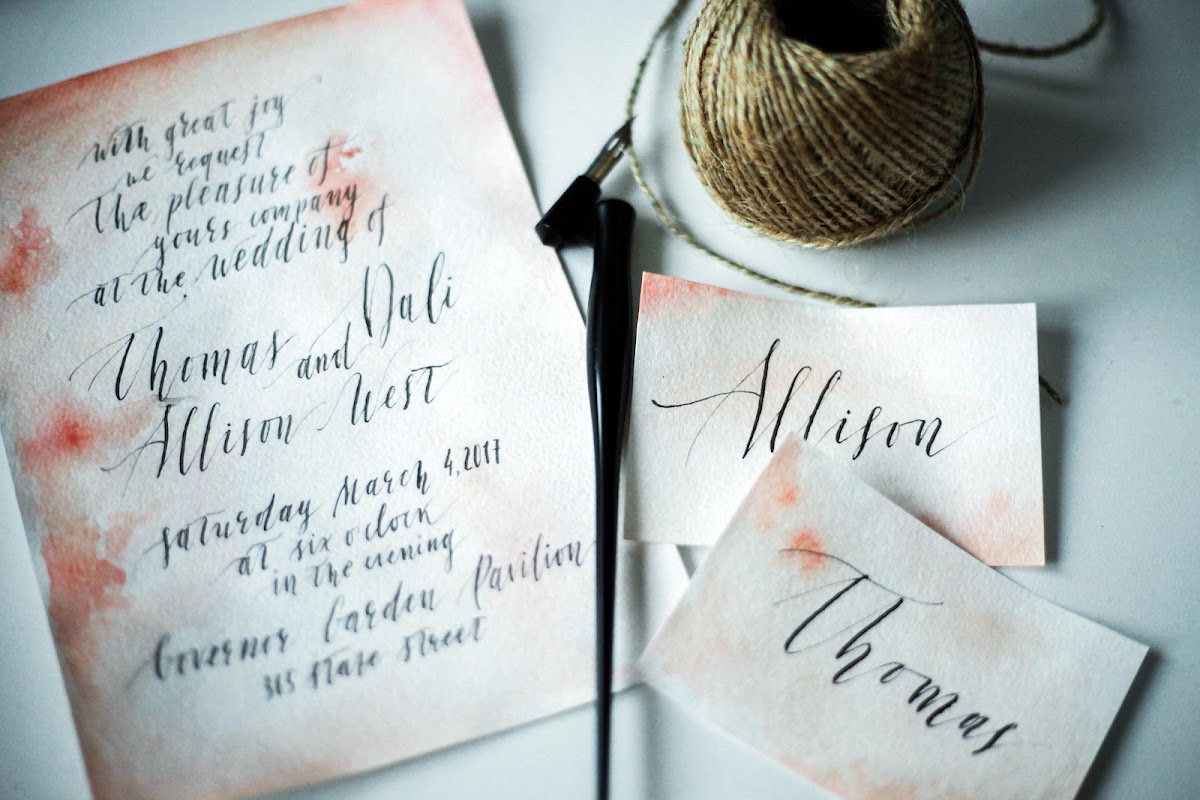 with great joy
we request
the pleasure of
yours company
at the wedding of
Thomas and Dali
Allison West
saturday March 4, 2017
at six o'clock
in the evening
Governor Garden Pavilion
315 state street
Allison
Thomas